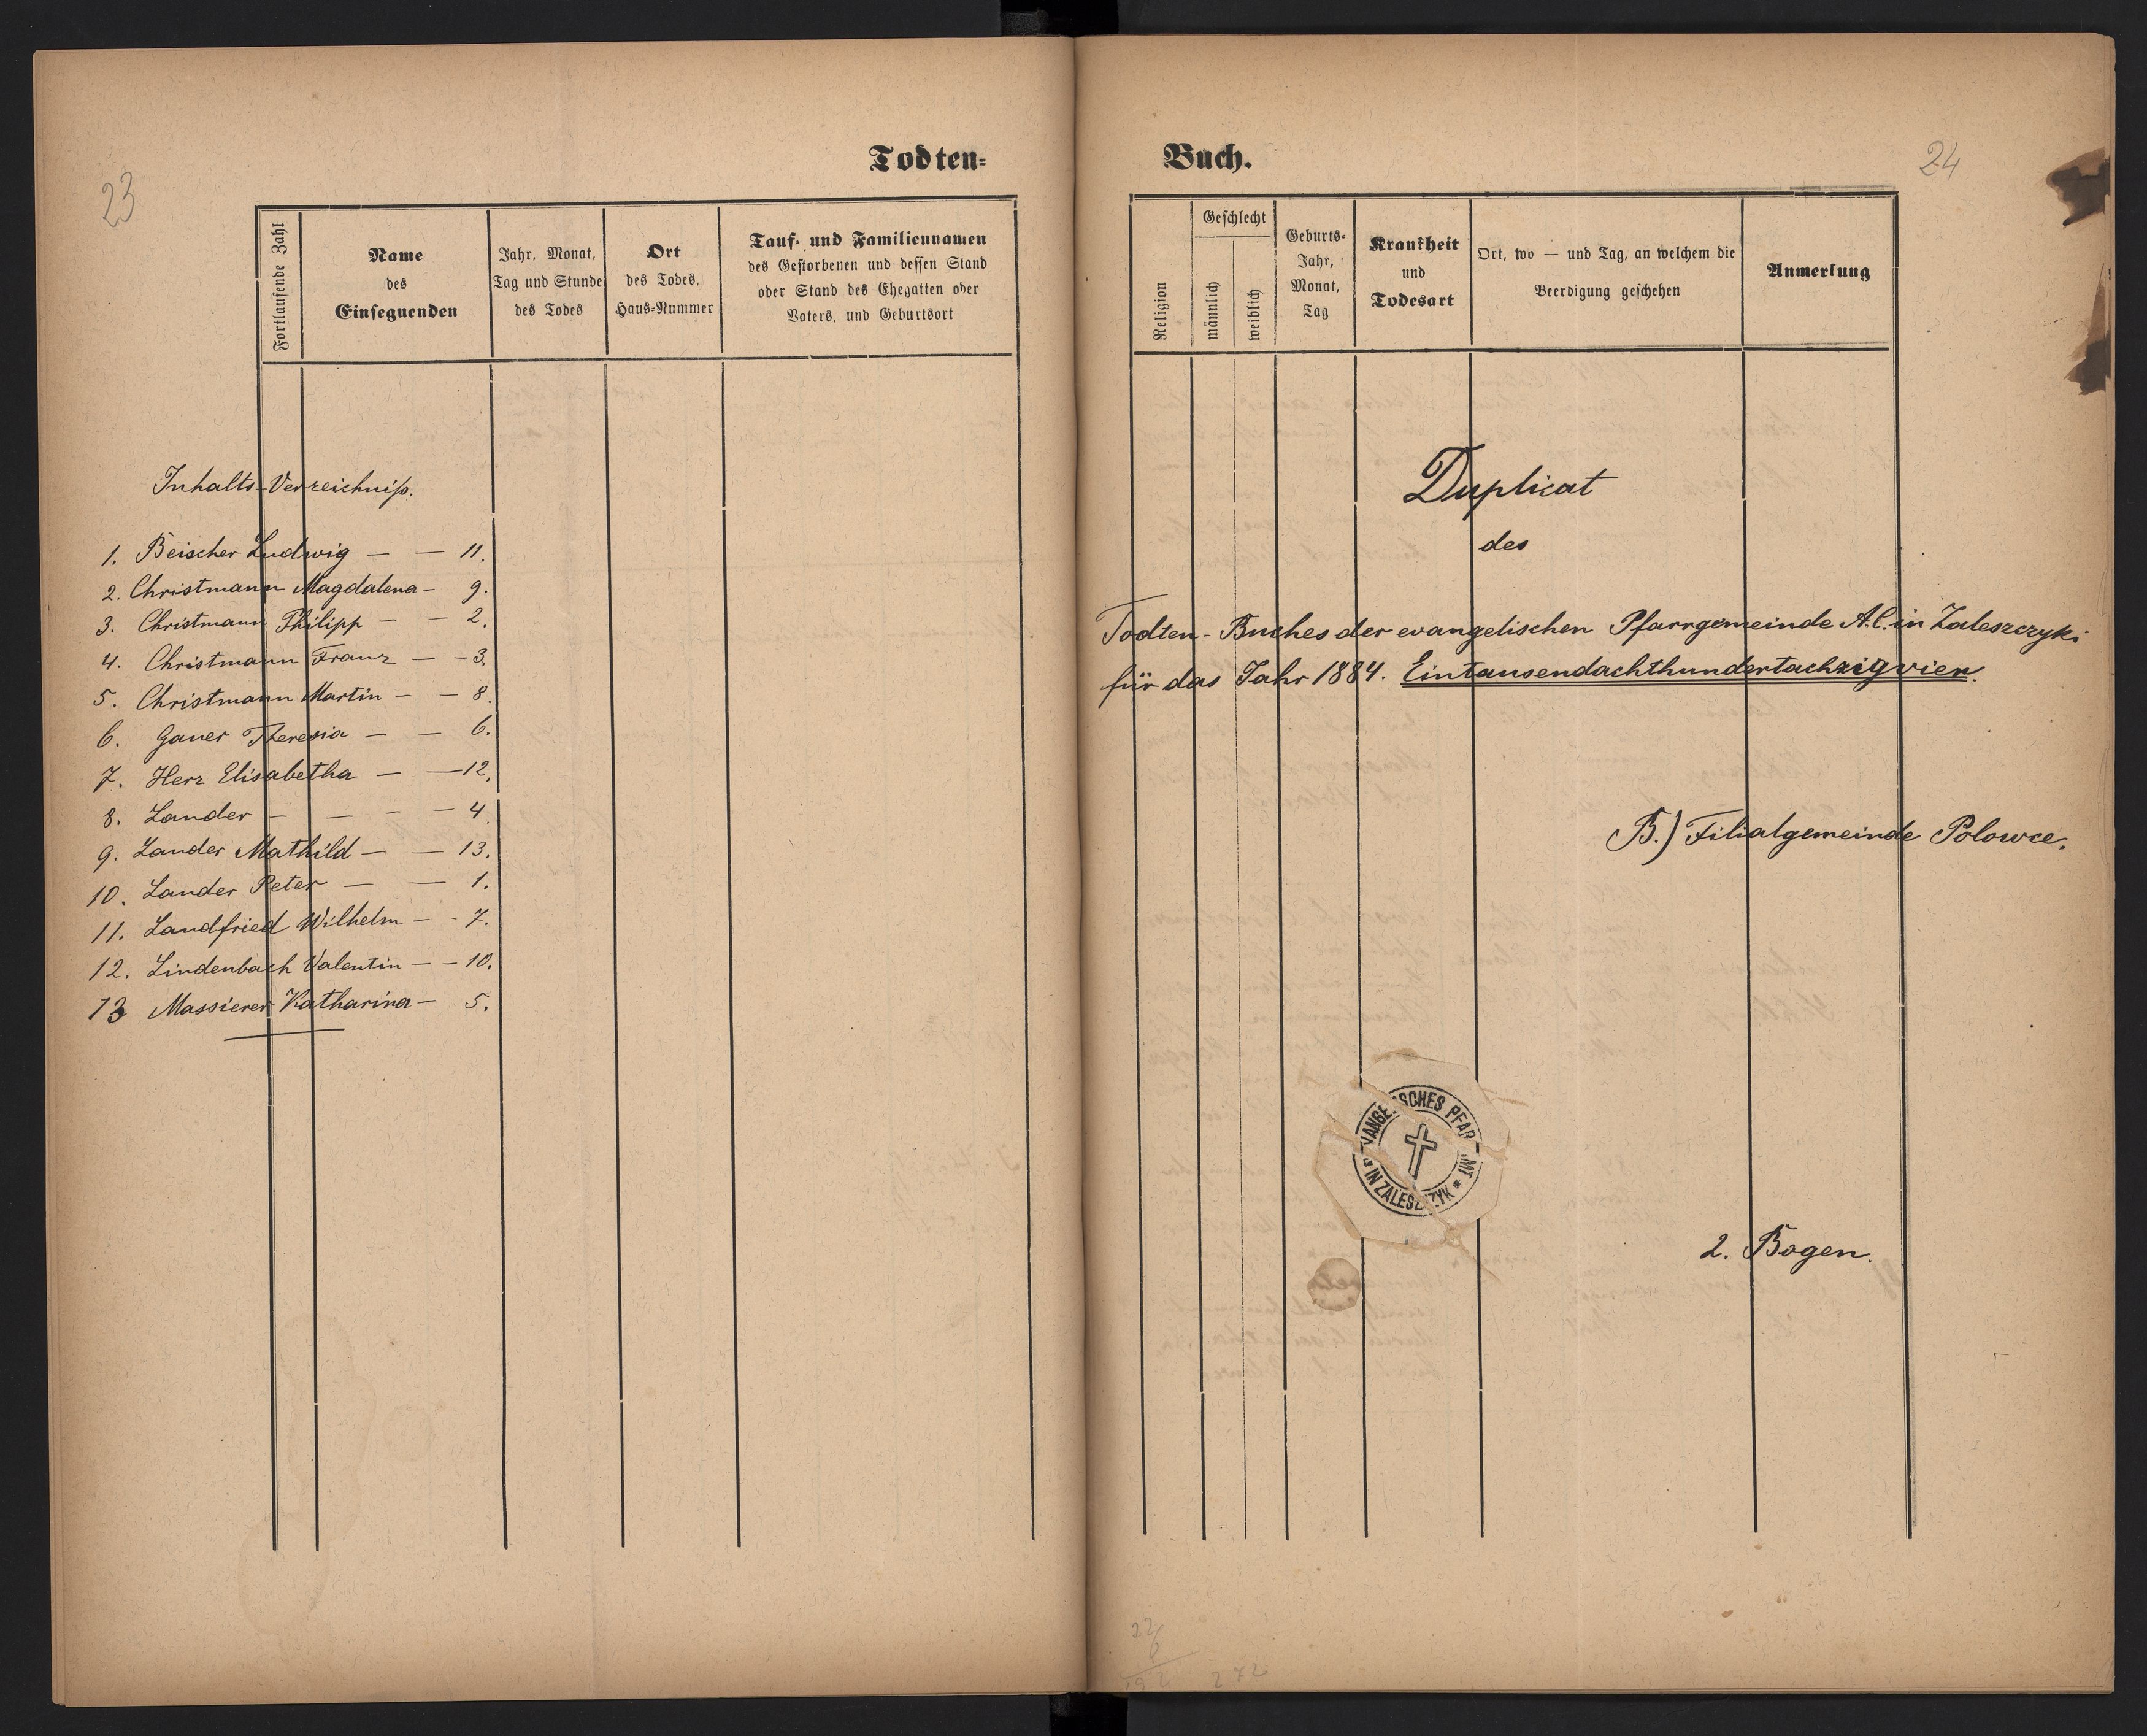 Todten-
23
Fortlaufende Zahl
Name
des
Einsegnenden
Jahr, Monat,
Tag und Stunde
des Todes
Ort
des Todes,
Haus-Nummer
Tauf- und Familiennamen
des Gestorbenen und dessen Stand
oder Stand des Ehegatten oder
Vaters, und Geburtsort
Inhalts-Verzeichniß.
1. Beischer Ludwig — — 11.
2. Christmann Magdalena — 9.
3. Christmann Philipp — — 2.
4. Christmann Franz — — 3.
5. Christmann Martin — — 8.
6. Gauer Theresia — — 6.
7. Herz Elisabetha — — 12.
8. Lander — — — — 4.
9. Lander Mathild — — 13.
10. Lander Peter — — 1.
11. Landfried Wilhelm — - 7.
12. Lindenbach Valentin — — 10.
13 Massierer Katharina — 5.
Buch.
24
Religion
Geschlecht
männlich
weiblich
Geburts-
Jahr,
Monat,
Tag
Krankheit
und
Todesart
Ort, wo — und Tag, an welchem die
Beerdigung geschehen
Anmerkung
Duplicat
des
Todten-Buches der evangelischen Pfarrgemeinde A.C. in Zaleszczyki
für das Jahr 1884. Eintausendachthundertachzigvier.
B.) Filialgemeinde Polowce.
VANGE ISCHES PFAR MT * IN ZALESZ ZYK
2. Bogen.
272